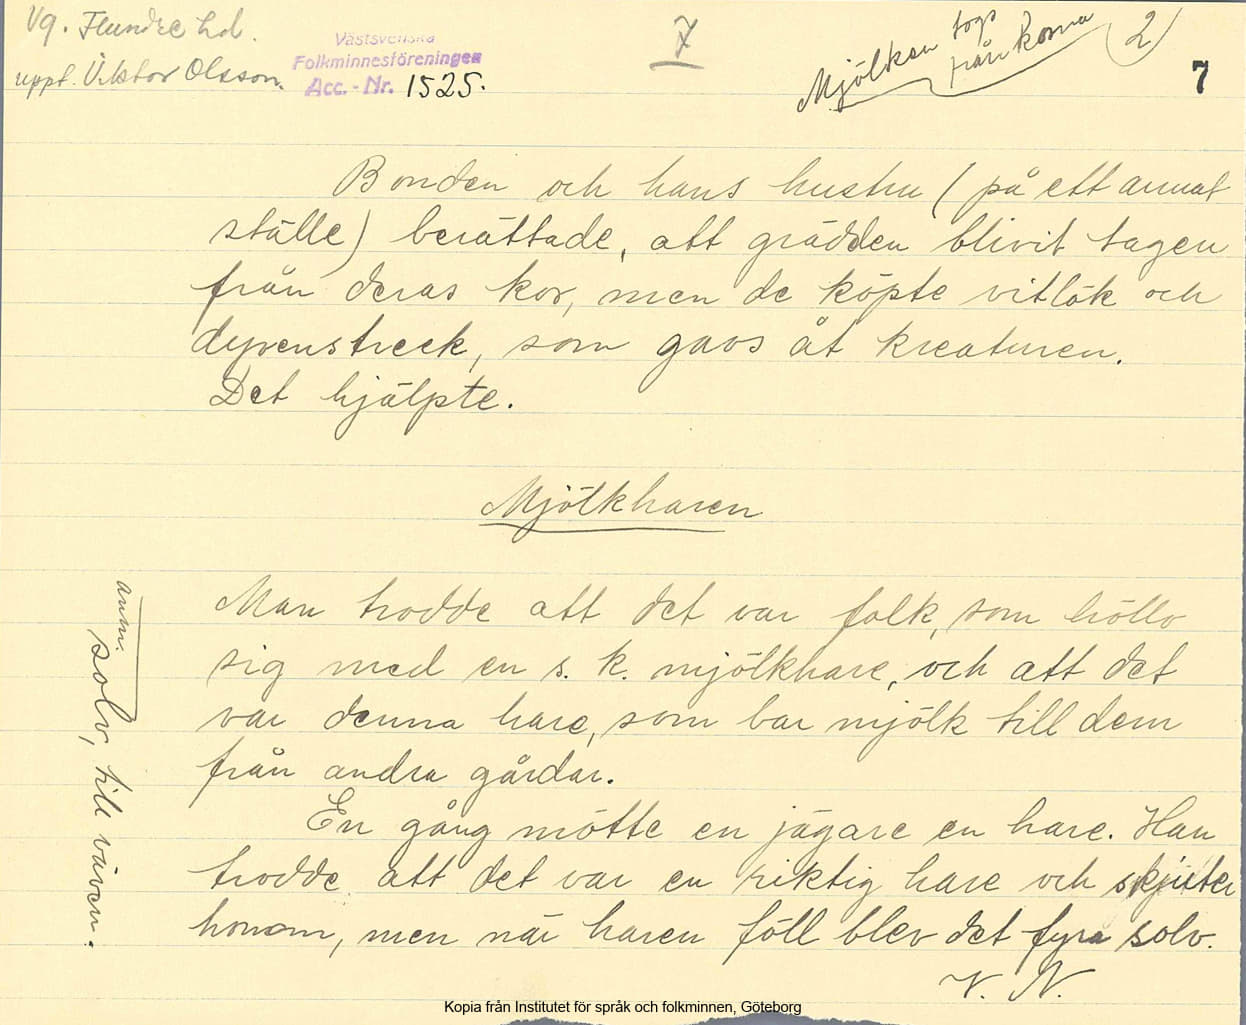 Vg. Flundre hd.
uppt. Viktor Olsson.
Västsvenska
Folkminnesföreningen
Acc. - Nr. 1525.
7
Mjölken togs
från korna
2)
7
Bonden och hans hustru (på ett annat
ställe) berättade, att grädden blivit tagen
från deras kor, men de köpte vitlök och
dyvenstreck, som gavs åt kreaturen.
Det hjälpte.
Mjölkharen
Man trodde att det var folk, som höllo
sig med en s. k. mjölkhare, och att det
var denna hare, som bar mjölk till dem
från andra gårdar.
En gång mötte en jägare en hare. Han
trodde att det var en riktig hare och skjuter
honom, men när haren föll blev det fyra solv.
V. N.
anm.
solv, till väven.
Kopia från Institutet för språk och folkminnen, Göteborg